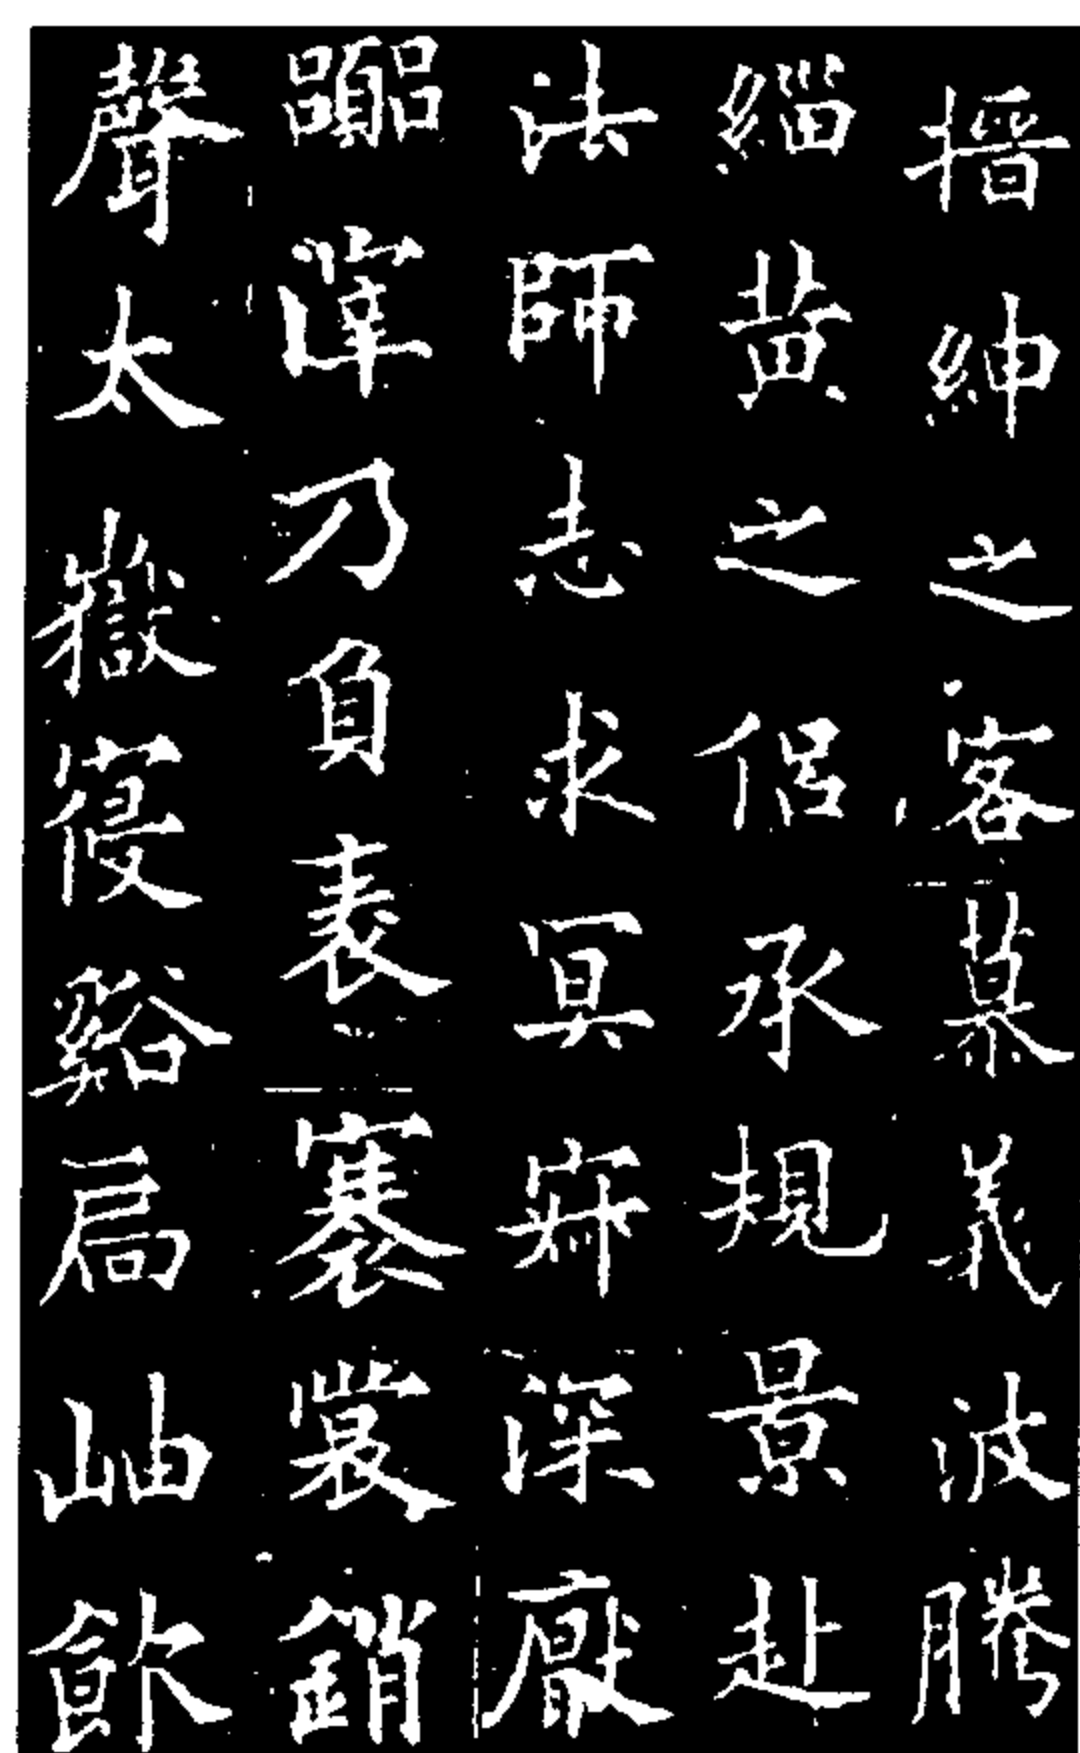 搢紳之客慕義波騰
緇黃之侶承規景赴
法師志求冥寂深厭
囂滓乃負袠褰裳銷
聲太嶽寑谿扃岫飲